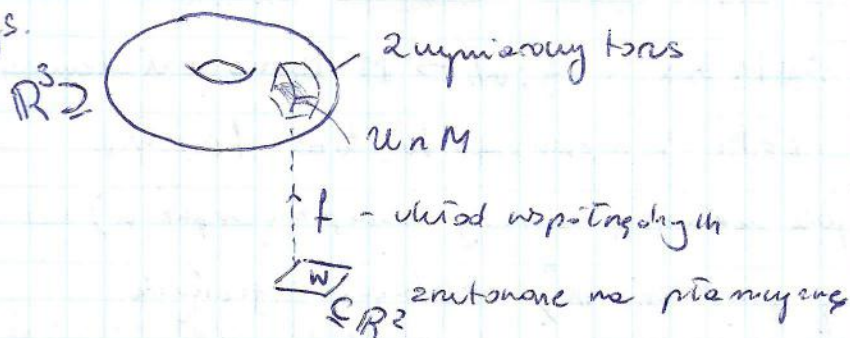 ys.
2wymiarowy torus
ℝ³ ⊇
U ∩ M
f - układ współrzędnych
W
⊆ ℝ² zrzutowane na płaszczyznę